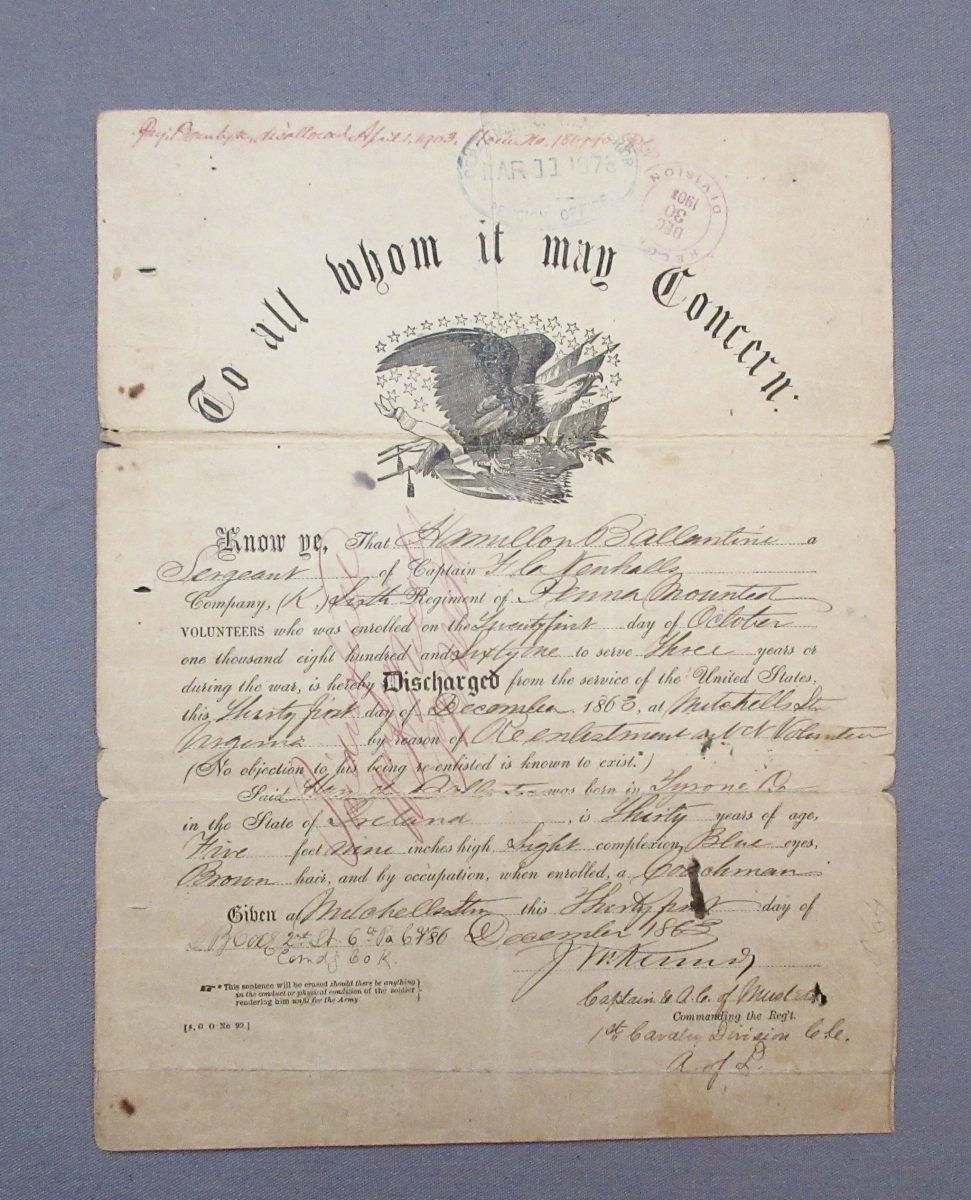 disallowed April 1, 1903,
MAR 11 1878
DIVISION
DEC
30
1901
REC
To all whom it may Concern:
Know ye, That Hamilton Ballantine a
Sergeant of Captain
Company, (K.) Sixth Regiment of Penna Mounted
VOLUNTEERS who was enrolled on the Twenty first day of October
one thousand eight hundred and sixty one to serve Three years or
during the war, is hereby Discharged from the service of the United States,
this Thirty first day of December, 1863, at Mitchells Stn
Virginia by reason of Reenlistment as Vet Volunteer
(No objection to his being re-enlisted is known to exist.*)
Said was born in Tyrone Co
in the State of Ireland, is Thirty years of age,
Five feet nine inches high, Light complexion, Blue eyes,
Brown hair, and by occupation, when enrolled, a Coachman
Given at Mitchells Stn this Thirty first day of
December 1863
2nd Lt. 6th Pa Cav
Comdg Co K.
* This sentence will be erased should there be anything
in the conduct or physical condition of the soldier
rendering him unfit for the Army.
[A. G O No 99.]
Captain & A. C. of Musters
Commanding the Reg't.
1st Cavalry Division C.C.
A. of P.